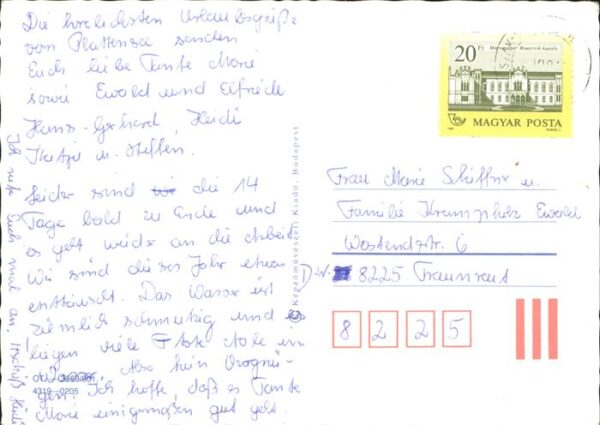 Die herzlichsten Urlaubsgrüße
vom Plattensee senden
Euch liebe Tante Marie
sowie Ewald und Elfriede
Hans-Gerhard Heidi
u. Steffen.
Leider sind die 14
Tage bald zu Ende und
es geht wieder an die Arbeit
Wir sind dieses Jahr etwas
enttäuscht. Das Wasser ist
ziemlich schmutzig und es
liegen viele tote in
Also kein Vergnü-
gen. Ich hoffe, daß es Tante
Marie einigermaßen gut geht.
Ich ruf Euch mal an. Heidi
4319 0205
Képzőművészeti Kiadó, Budapest
20 Ft
MAGYAR POSTA
Frau Marie Schiffner u.
Familie Krumpholz Ewald
Westendstr. 6
D-W-8225 Traunreut
8 2 2 5